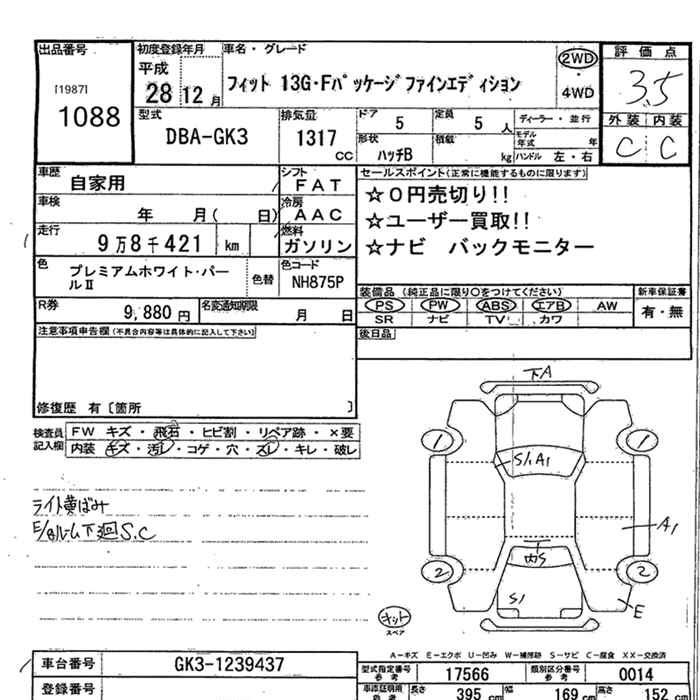 出品番号
[1987]
1088
初度登録年月
平成
28 12 月
車名・グレード
フィット 13G・Fパッケージファインエディション
2WD
4WD
評価点
3.5
外装 内装
C C
型式
DBA-GK3
排気量
1317
cc
ドア
5
定員
5 人
形状
ハッチB
積載
kg
ディーラー・並行
モデル年式 年
ハンドル 左・右
車歴
自家用
シフト
FAT
車検
年 月( 日)
冷房
AAC
走行
9万8千421 km
燃料
ガソリン
色
プレミアムホワイト・パールⅡ
色替
色コード
NH875P
R券
9,880 円
名変通知期限
月 日
セールスポイント(正常に機能するものに限ります)
☆0円売切り!!
☆ユーザー買取!!
☆ナビ バックモニター
装備品(純正品に限り○をつけてください)
PS PW ABS エアB AW
SR ナビ TV カワ
新車保証書
有・無
後日品
注意事項申告欄(不具合内容等は具体的に記入して下さい)
修復歴 有〔箇所 〕
検査員記入欄
FW キズ・飛石・ヒビ割・リペア跡・×要
内装 キズ・汚レ・コゲ・穴・スレ・キレ・破レ
ライト黄ばみ
S.C
下A
1
1
S1.A1
A1
2
2
内S
S1
E
キット
スペア
A-キズ E-エクボ U-凹み W-補修跡 S-サビ C-腐食 XX-交換済
車台番号
GK3-1239437
登録番号
型式指定番号
参考
17566
類別区分番号
参考
0014
車添証明所
参考
長さ
395 cm
幅
169 cm
高さ
152 cm